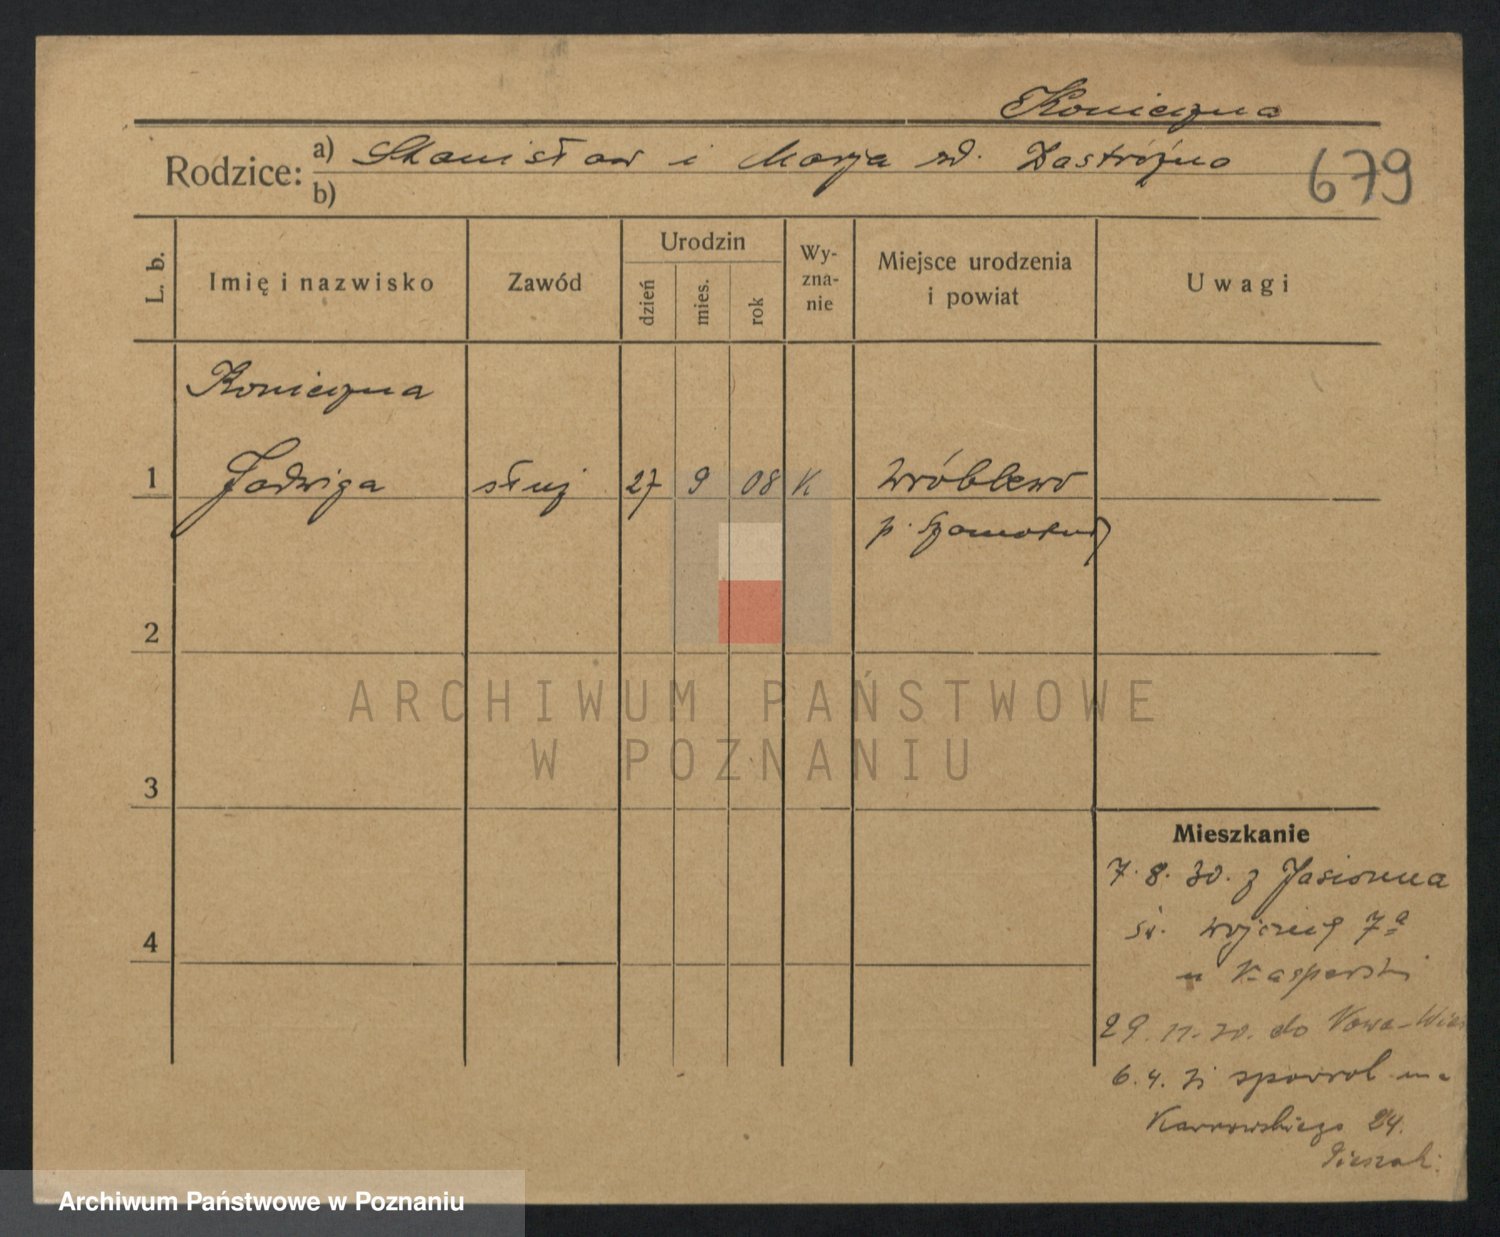 Konieczna
Rodzice: a) Stanisław i Marja zd. Zastróżna
b)
679
L. b.
Imię i nazwisko
Zawód
Urodzin
dzień
mies.
rok
Wy-
zna-
nie
Miejsce urodzenia
i powiat
Uwagi
Konieczna
1 Jadwiga służ 27 9 08 K Wróblewo
p. Szamotuły
2
3
4
Mieszkanie
7. 8. 30. z Jasionna
św. Wojciech 7a
u Kasperski
29. 11. 30. do Nowa-Wieś
6. 4. 31 spowrot na
24.
ARCHIWUM PAŃSTWOWE
W POZNANIU
Archiwum Państwowe w Poznaniu